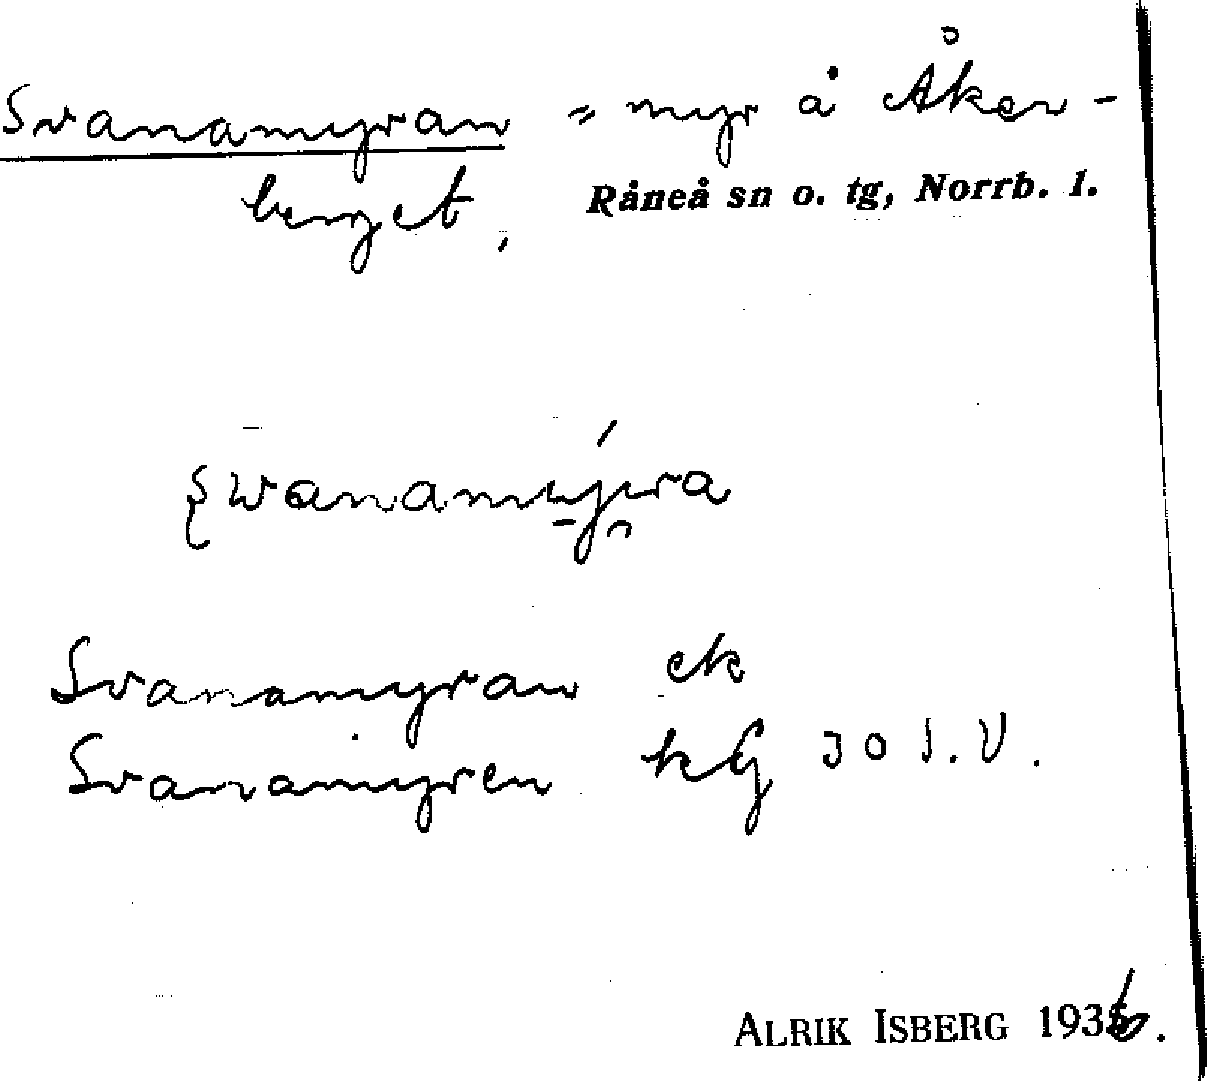 Svanamyran = myr å Åker-
berget, Råneå sn o. tg, Norrb. l.
Svanamyran ek
Svanamyren kG 30 1.V.
ALRIK ISBERG 1936.